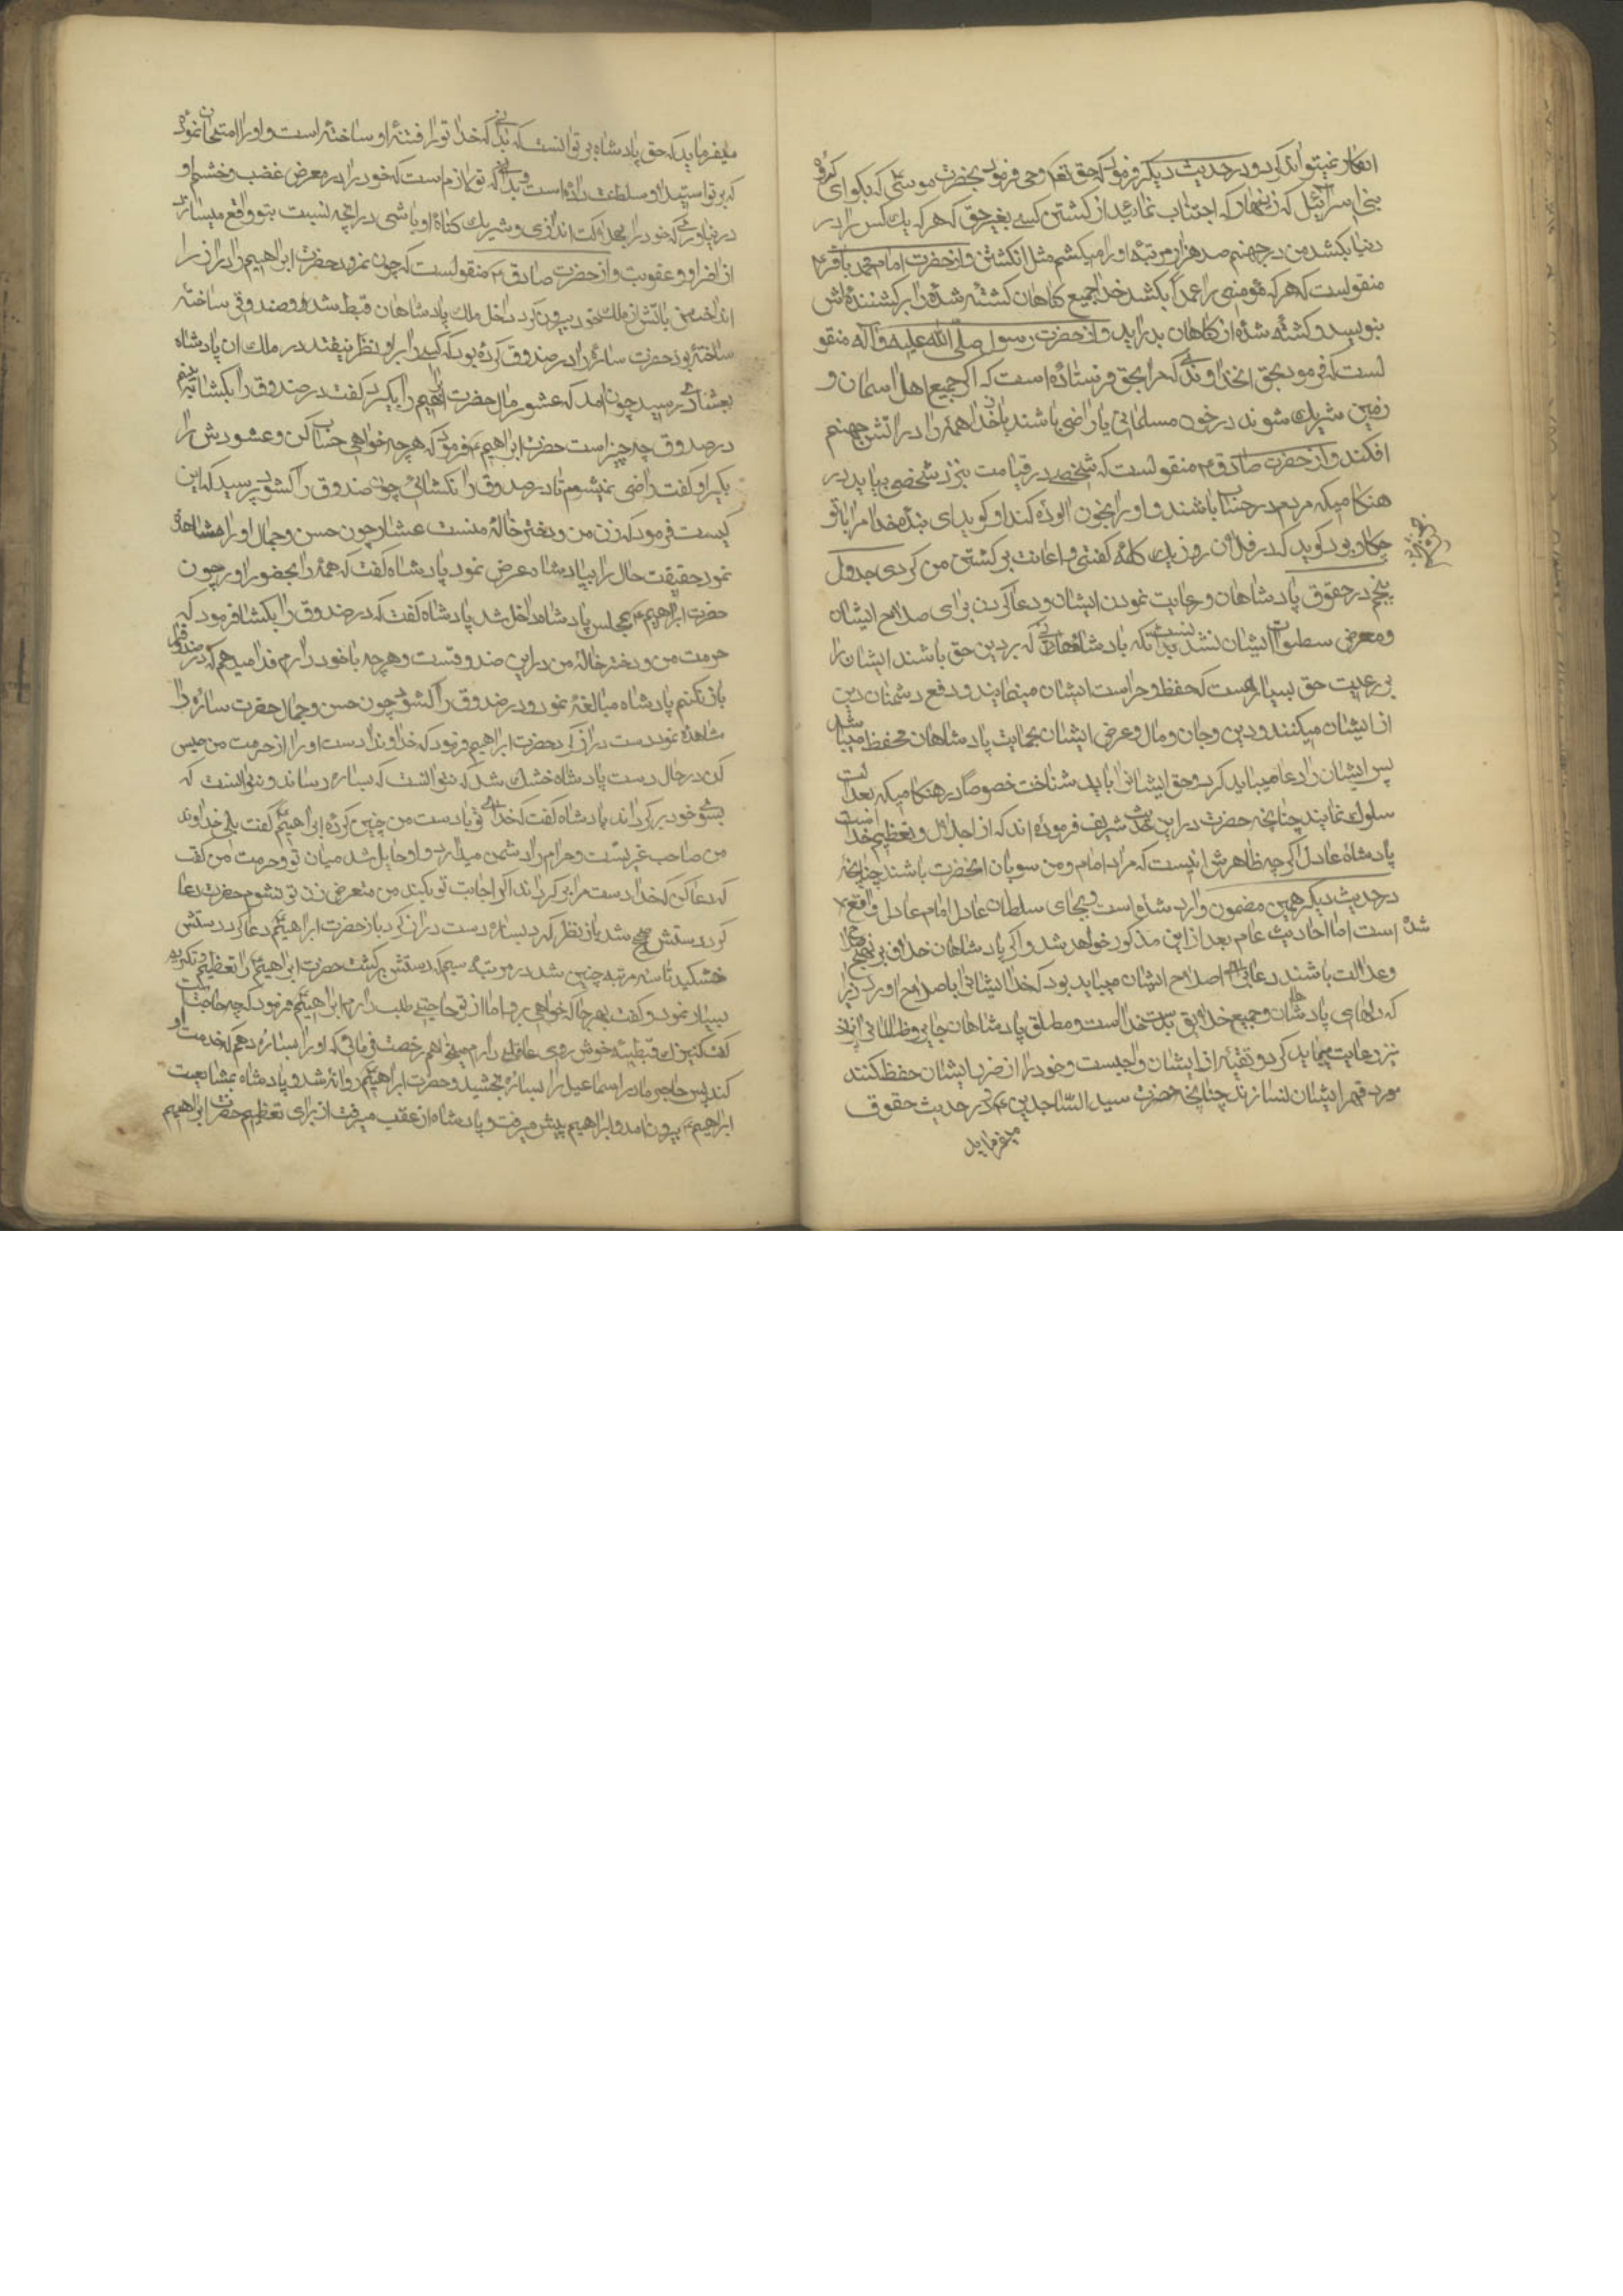 انکار نمیتواند کرد و در حدیث دیگر فرمود که حق تعالی وحی فرمود بحضرت موسی که بگو ای گروه
بنی اسرائیل که زنهار که اجتناب نمائید از کشتن کسے بغیر حق که هر که یك کس را در
دنیا بکشد من در جهنم صد هزار مرتبه او را میکشم مثل انکشتن و از حضرت امام محمد باقر ۴
منقولست که هر که مؤمنی را عمداً بکشد خدا جمیع کناهان کشته شده را بر کشنندهٔ اش
بنویسد و کشته شده از کناهان بدر اید و از حضرت رسول صلی الله علیه و آله منقو
لست که فرمود بحق انخداوندی که مرا بحق فرستاده است که اکر جمیع اهل اسمان و
زمین شریك شوند در خون مسلمانی یا راضی باشند بان خدا همه را در اتش جهنم
افکند و از حضرت صادق ۴ منقولست که شخصے در قیامت بنزد شخصی بیاید در
هنکامیکه مردم در حساب باشند و او را بخون الوده کند او کوید ای بنده خدا مرا با تو
چکار بود کوید که در فلان روز یك کلمه کفتی و اعانت بر کشتن من کردی جدول
پنجم در حقوق پادشاهان و رعایت نمودن ایشان و دعا کردن برای صلاح ایشان
و معرض سطوات ایشان نشدنست بدانکه پادشاهانی که بر دین حق باشند ایشان را
بر رعیت حق بسیار هست که حفظ و حراست ایشان مینمایند و دفع دشمنان دین
از ایشان میکنند و دین و جان و مال و عرض ایشان بحمایت پادشاهان محفظ میباشد
پس ایشان را دعا میباید کرد و حق ایشانرا باید شناخت خصوصاً در هنکامیکه بعدالت
سلوك نمایند چنانچه حضرت در این حدیث شریف فرموده اند که از اجلال و تعظیم خداست
پادشاه عادل اکرچه ظاهرش انیست که مراد امام و من سوبان انحضرت باشند چنانچه
در حدیث دیگر همین مضمون وارد شده است و بجای سلطان عادل امام عادل واقع
شده است اما احادیث عام بعد از این مذکور خواهد شد و اکر پادشاهان خلاف بر نهج صلاح
و عدالت باشند دعا برای اصلاح ایشان میباید بود که خدا ایشانرا باصلاح اورد زیرا
که دلهای پادشاهان و جمیع خلایق بدست خداست و مطلق پادشاهان جابر و ظالم را نیز
نیز رعایت میباید کرد و تقیه از ایشان واجبست و خود را از ضرر ایشان حفظ کنند
مورد قهر ایشان نسازند چنانچه حضرت سید الساجدین ۴ در حدیث حقوق
میفرماید
میفرماید که حق پادشاه بر تو انست که بدانی که خدا تو را فتنهٔ او ساخته است و او را امتحان نموده
که بر تو استیلا و سلطنت داده است و بدانی که تو را لازم است که خود را در معرض غضب و خشم او
در نیاوری که خود را بهلاکت اندازی و شریك کناه او باشی در انچه نسبت بتو واقع میسازد
از اضرار و عقوبت و از حضرت صادق ۴ منقولست که چون نمرود حضرت ابراهیم را بعد از
انداختن باتش از ملك خود بیرون کرد داخل ملك پادشاهان قبط شد و صندوقی ساخته
ساخته بود حضرت ساره را در صندوق کرده بود که کسی را بر او نظر نیفتد در ملك ان پادشاه
بعشاری رسید چون امد که عشور مال حضرت ابراهیم را بکیرد کفت در صندوق را بکشا تا به بینم
در صندوق چه چیز است حضرت ابراهیم ۴ فرمود که هر چه خواهی حساب کن و عشورش را
بکیر او کفت راضی نمیشوم تا در صندوق را نکشائی چون صندوق را کشود پرسید که این
کیست فرمود که زن من و دختر خالهٔ منست عشار چون حسن و جمال او را مشاهده
نمود حقیقت حال را بپادشاه عرض نمود پادشاه کفت که همه را بحضور اور چون
حضرت ابراهیم ۴ بمجلس پادشاه داخل شد پادشاه کفت که در صندوق را بکشا فرمود که
حرمت من و دختر خالهٔ من در این صندوقست و هر چه با خود دارم فدا میدهم که در صندوق را
باز نکنم پادشاه مبالغه نمود و در صندوق را کشود چون حسن و جمال حضرت ساره را
مشاهده نمود دست دراز کرد حضرت ابراهیم فرمود که خداوندا دست او را از حرمت من حبس
کن در حال دست پادشاه خشك شد که نتوانست که بساره رساند و نتوانست که
بسوی خود بر کرداند پادشاه کفت که خدای تو با دست من چنین کرده ابراهیم کفت بلی خداوند
من صاحب غیرتست و حرام را دشمن میدارد و او حایل شد میان تو و حرمت من کفت
که دعا کن که خدا دست مرا بر کرداند اکر اجابت تو بکند من متعرض زن تو نشوم حضرت دعا
کرد دستش صحیح شد باز نظر کرد بساره دست دراز کرد باز حضرت ابراهیم دعا کرد دستش
خشکید تا سه مرتبه چنین شد در مرتبه سیم که دستش بر کشت حضرت ابراهیم را تعظیم و تکریم
بسیار نمود و کفت بهر جا که خواهی برو اما از تو حاجتے طلب دارم ابراهیم فرمود که چه حاجتست
کفت کنیزك قبطیهٔ خوش روی عاقله دارم میخواهم رخصت فرمائی که او را بساره دهم که خدمت او
کند پس حاجر مادر اسماعیل را بساره بخشید و حضرت ابراهیم روانه شد و پادشاه بمشایعت
ابراهیم بیرون امد و ابراهیم پیش میرفت و پادشاه از عقب میرفت از برای تعظیم حضرت ابراهیم